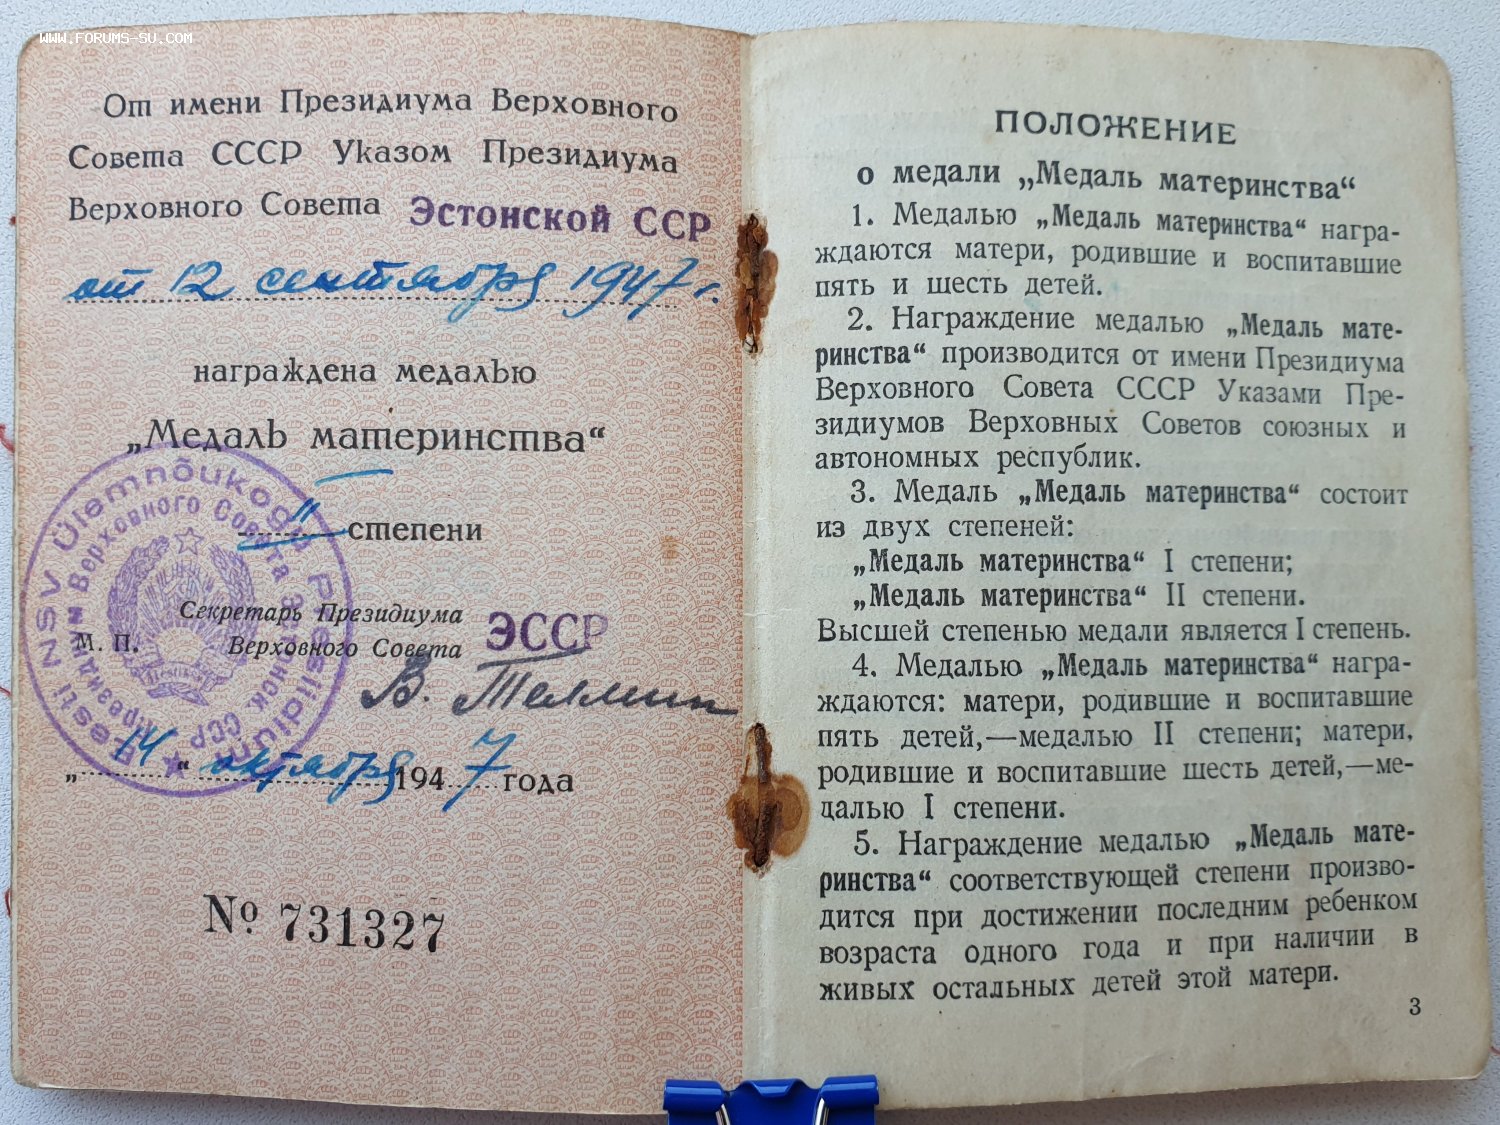 WWW.FORUMS-SU.COM
От имени Президиума Верховного
Совета СССР Указом Президиума
Верховного Совета Эстонской ССР
от 12 сентября 1947 г.
награждена медалью
„Медаль материнства“
II степени
Секретарь Президиума
Верховного Совета ЭССР
М. П.
В. Телман
„14“ октября 1947 года
№ 731327
Eesti NSV Ülemnõukogu Presiidium
Президиум Верховного Совета Эстонск. ССР
ПОЛОЖЕНИЕ
о медали „Медаль материнства“
1. Медалью „Медаль материнства“ награ-
ждаются матери, родившие и воспитавшие
пять и шесть детей.
2. Награждение медалью „Медаль мате-
ринства“ производится от имени Президиума
Верховного Совета СССР Указами Пре-
зидиумов Верховных Советов союзных и
автономных республик.
3. Медаль „Медаль материнства“ состоит
из двух степеней:
„Медаль материнства“ I степени;
„Медаль материнства“ II степени.
Высшей степенью медали является I степень.
4. Медалью „Медаль материнства“ награ-
ждаются: матери, родившие и воспитавшие
пять детей,—медалью II степени; матери,
родившие и воспитавшие шесть детей,—ме-
далью I степени.
5. Награждение медалью „Медаль мате-
ринства“ соответствующей степени произво-
дится при достижении последним ребенком
возраста одного года и при наличии в
живых остальных детей этой матери.
3